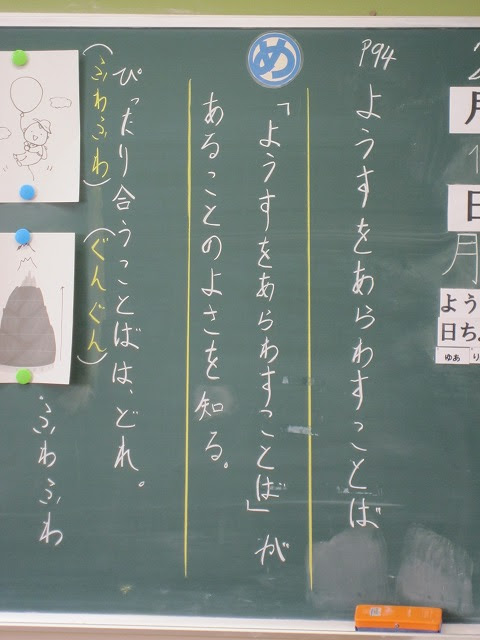 月
日
月
よう
日ち
ゆあ
P94
ようすをあらわすことば
め
「ようすをあらわすことば」が
あることのよさを知る。
ぴったり合うことばは、どれ。
(ふわふわ)
(ぐんぐん)
ふわふわ